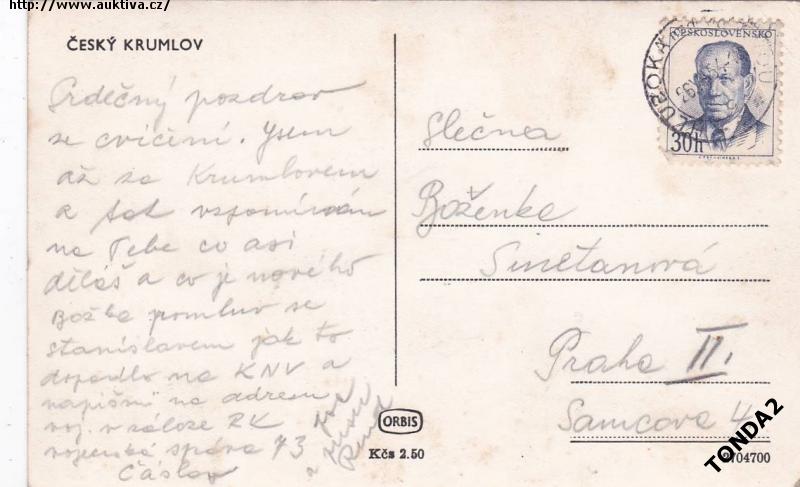 http://www.auktiva.cz/
ČESKÝ KRUMLOV
Srdečný pozdrav
ze cvičení. Jsem
až za Krumlovem
a tak vzpomínám
na Tebe co asi
děláš a co je nového
Božka promluv se
Stanislavem jak to
dopadlo na KNV a
napiš mi na adresu
voj. v záloze RK
vojenská správa 73
Čáslav
ČESKOSLOVENSKO
30h
Slečna
Boženka
Smetanová
Praha II.
Samcova 4
ORBIS
Kčs 2.50
TONDA2